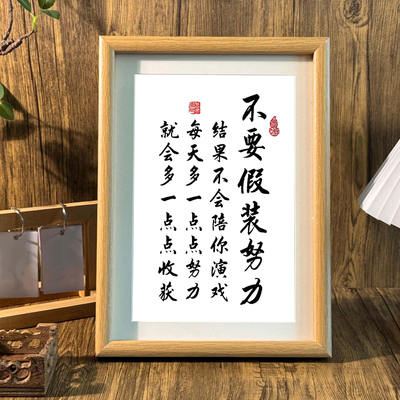 不要假装努力
结果不会陪你演戏
每天多一点点努力
就会多一点点收获